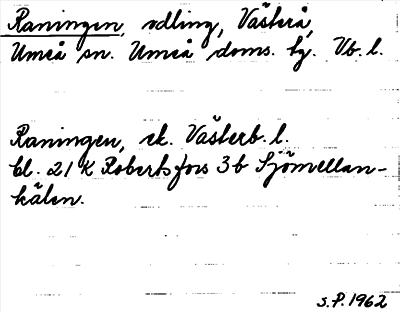 Raningen, odling, Västerå,
Umeå sn. Umeå doms. tg. Vb. l.
Raningen, ek. Västerb. l.
bl. 21 K Robertsfors 3b Sjömellan-
kälen.
S.P. 1962